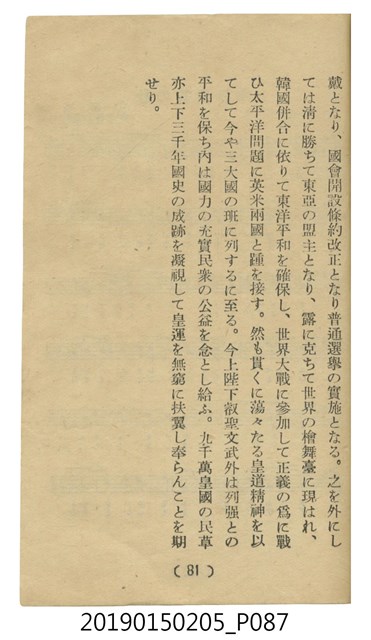 戴となり、國會開設條約改正となり普通選擧の實施となる。之を外にし
ては淸に勝ちて東亞の盟主となり、露に克ちて世界の檜舞臺に現はれ、
韓國併合に依りて東洋平和を確保し、世界大戰に參加して正義の爲に戰
ひ太平洋問題に英米兩國と踵を接す。然も貫くに蕩々たる皇道精神を以
てして今や三大國の班に列するに至る。今上陛下叡聖文武外は列强との
平和を保ち內は國力の充實民衆の公益を念とし給ふ。九千萬皇國の民草
亦上下三千年國史の成跡を凝視して皇運を無窮に扶翼し奉らんことを期
せり。
(81)
20190150205_P087